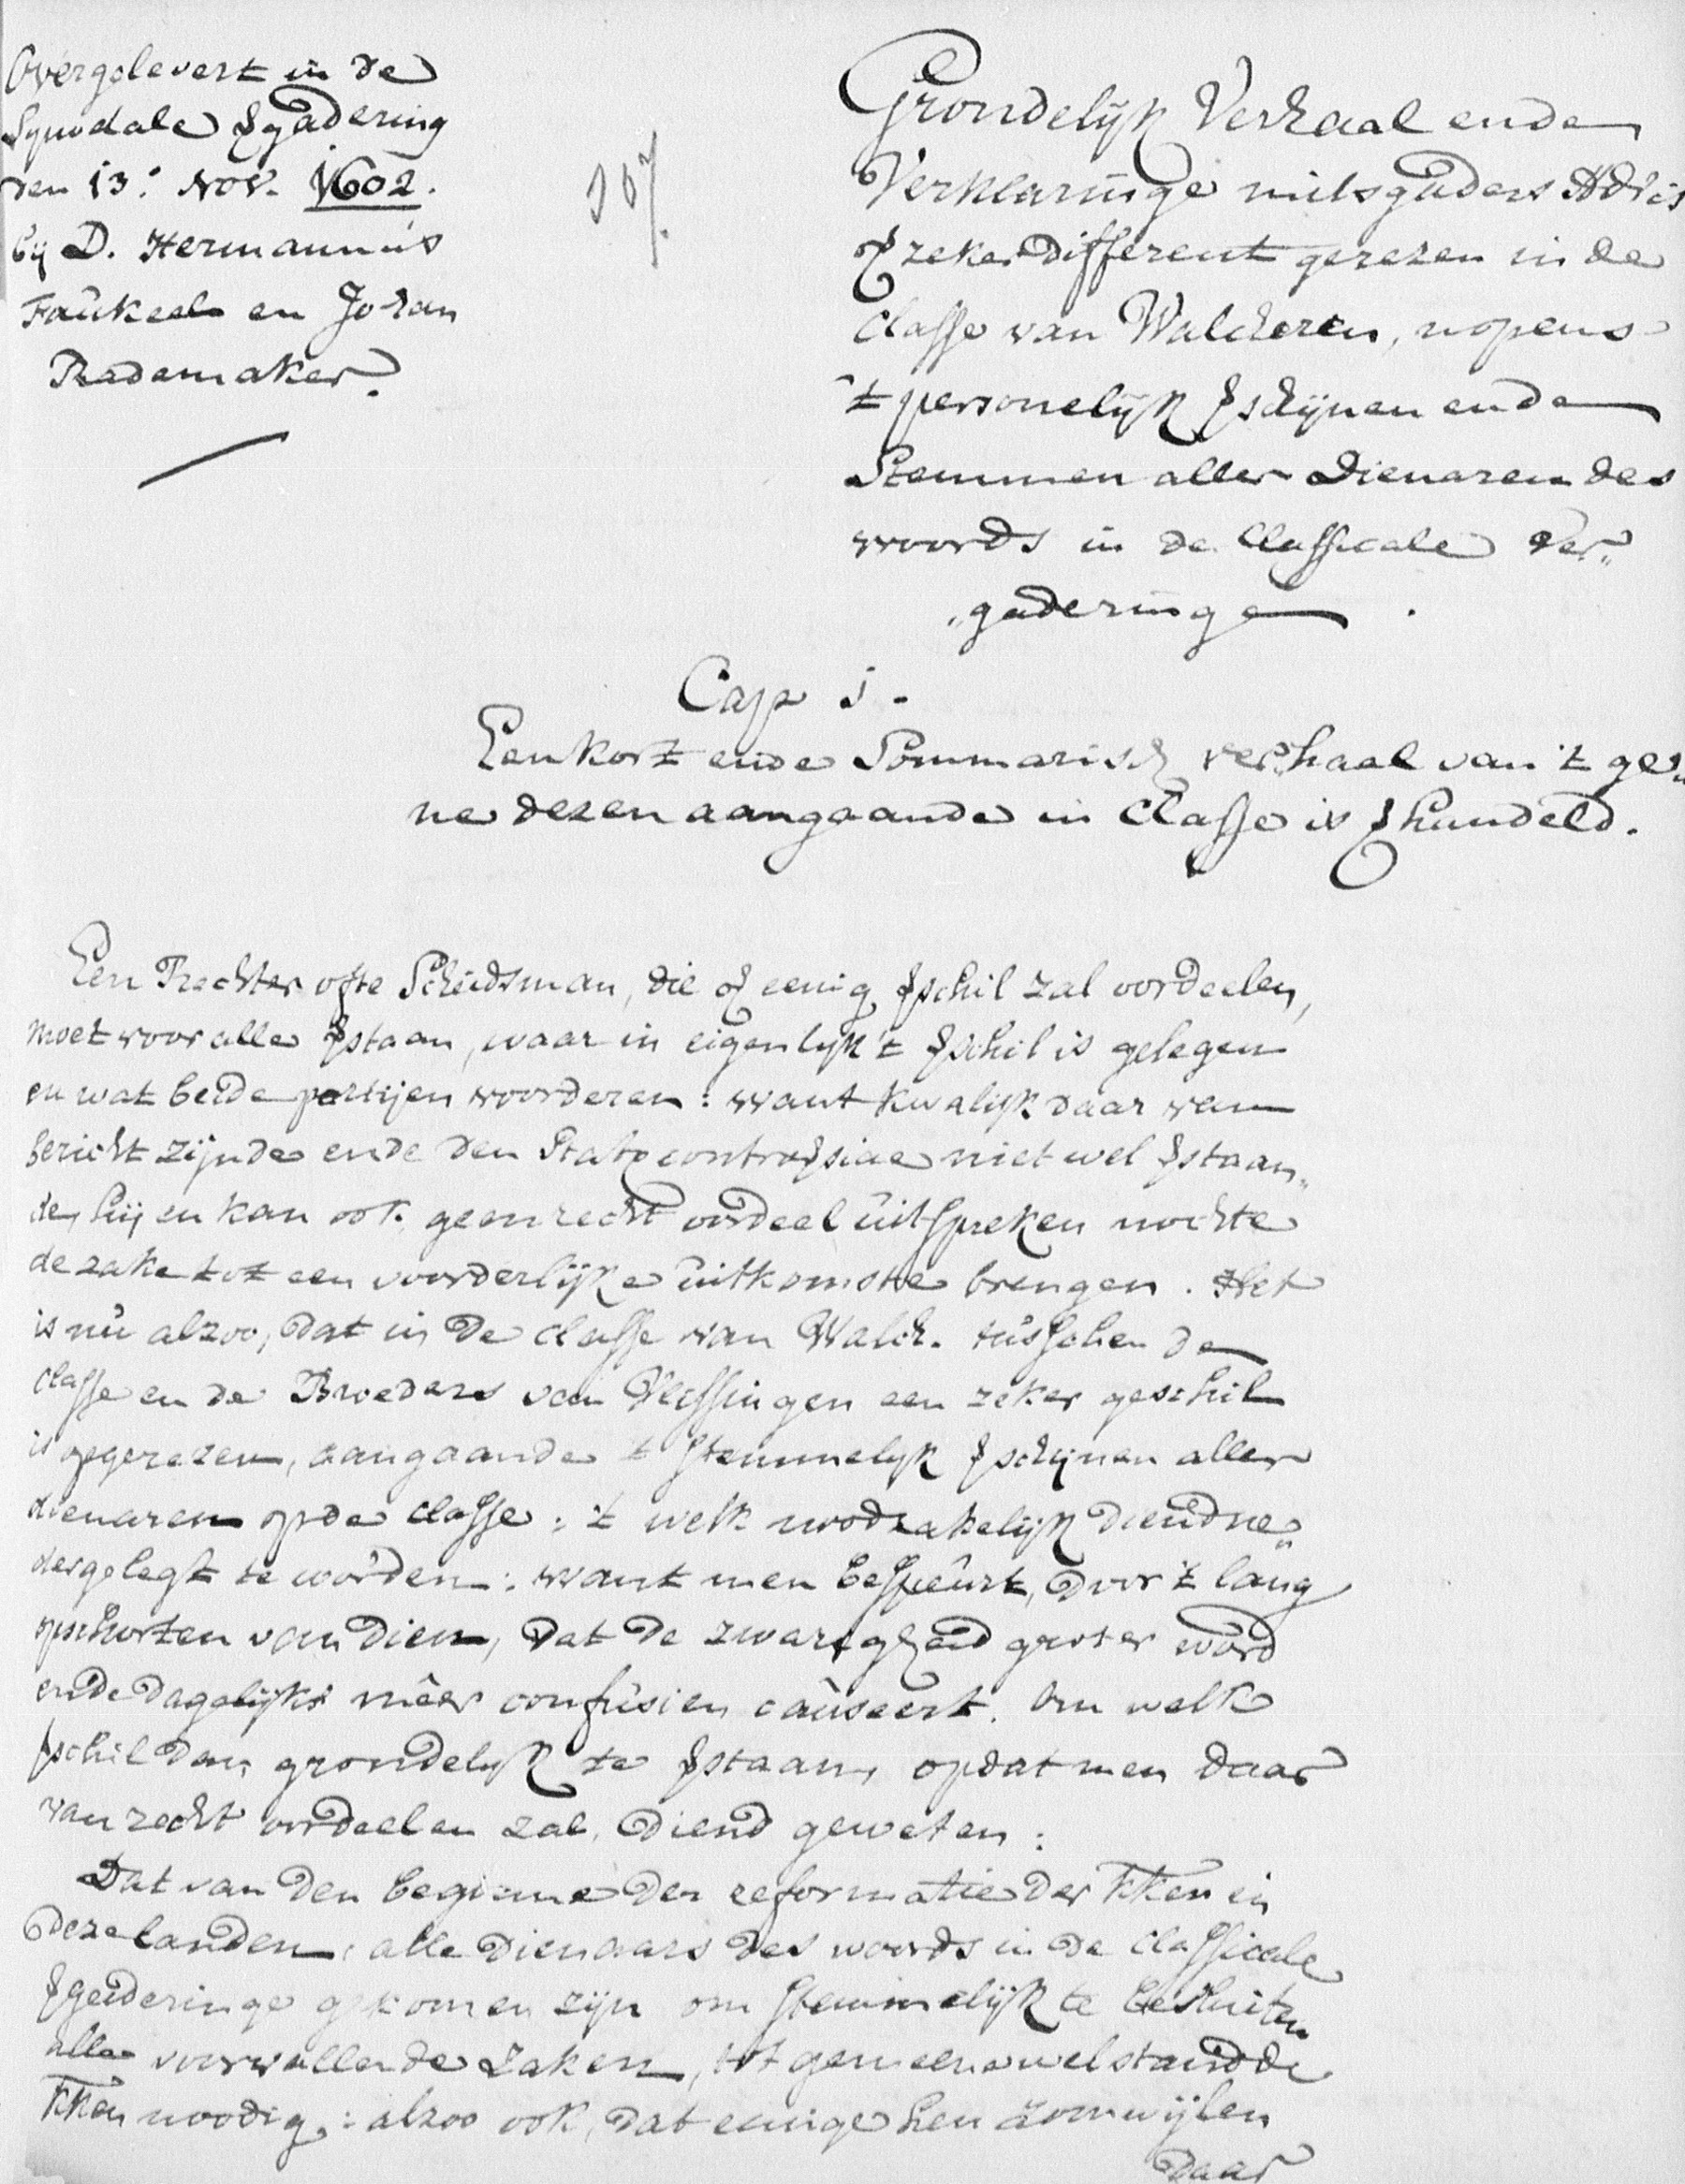 Overgelevert in de
Synodale Vergadering
den 13. Nov. 1602.
bij D. Hermannus
Faukeel en Johan
Rademaker.
107.
Grondelijk Verhaal ende
Verklaringe mitsgaders Advis
op zeker Different gerezen in de
Classe van Walcheren, nopens
't personelijk verschijnen ende
Stemmen aller Dienaren des
woords in de Classicale Ver„
„gaderinge.
Cap 1.
Een kort ende Sommarisch verhaal van 't ge„
ne dezen aangaande in Classe is verhandeld.
Een Rechter ofte Scheidsman, die op eenig verschil zal oordeelen,
moet voor alle verstaan, waar in eigenlijk 't verschil is gelegen
en wat beide partijen voorderen: want kwalijk daar van
bericht zijnde ende den Statum controversiae niet wel verstaan„
de, hij en kan ook geen recht oordeel uitspreken nochte
de zake tot een voorderlijke uitkomste brengen. Het
is nu alzoo, dat in de classe van Walch. tusschen de
Classe en de Broeders van Vlissingen een zeker geschil
is opgerezen, aangaande 't stemmelijk verschijnen aller
dienaren op de classe: 't welk noodzakelijk diend ne„
dergelegt te worden: want men bespeurt, door 't lang
opschorten van dien, dat de zwarigheid groter word
ende dagelijks mêer confusien causeert. Om welk
verschil dan grondelijk te verstaan, opdat men daar
van recht oordeelen zal, diend geweten:
Dat van den beginne der reformatie der KKen in
deze landen, alle Dienaars des woords in de classicale
vergaderinge gekomen zijn om stemmelijk te besluiten
alle voorvallende zaken, tot gemeene welstand de
KKen noodig: alzoo ook, dat eenige hen zomwijlen
daar